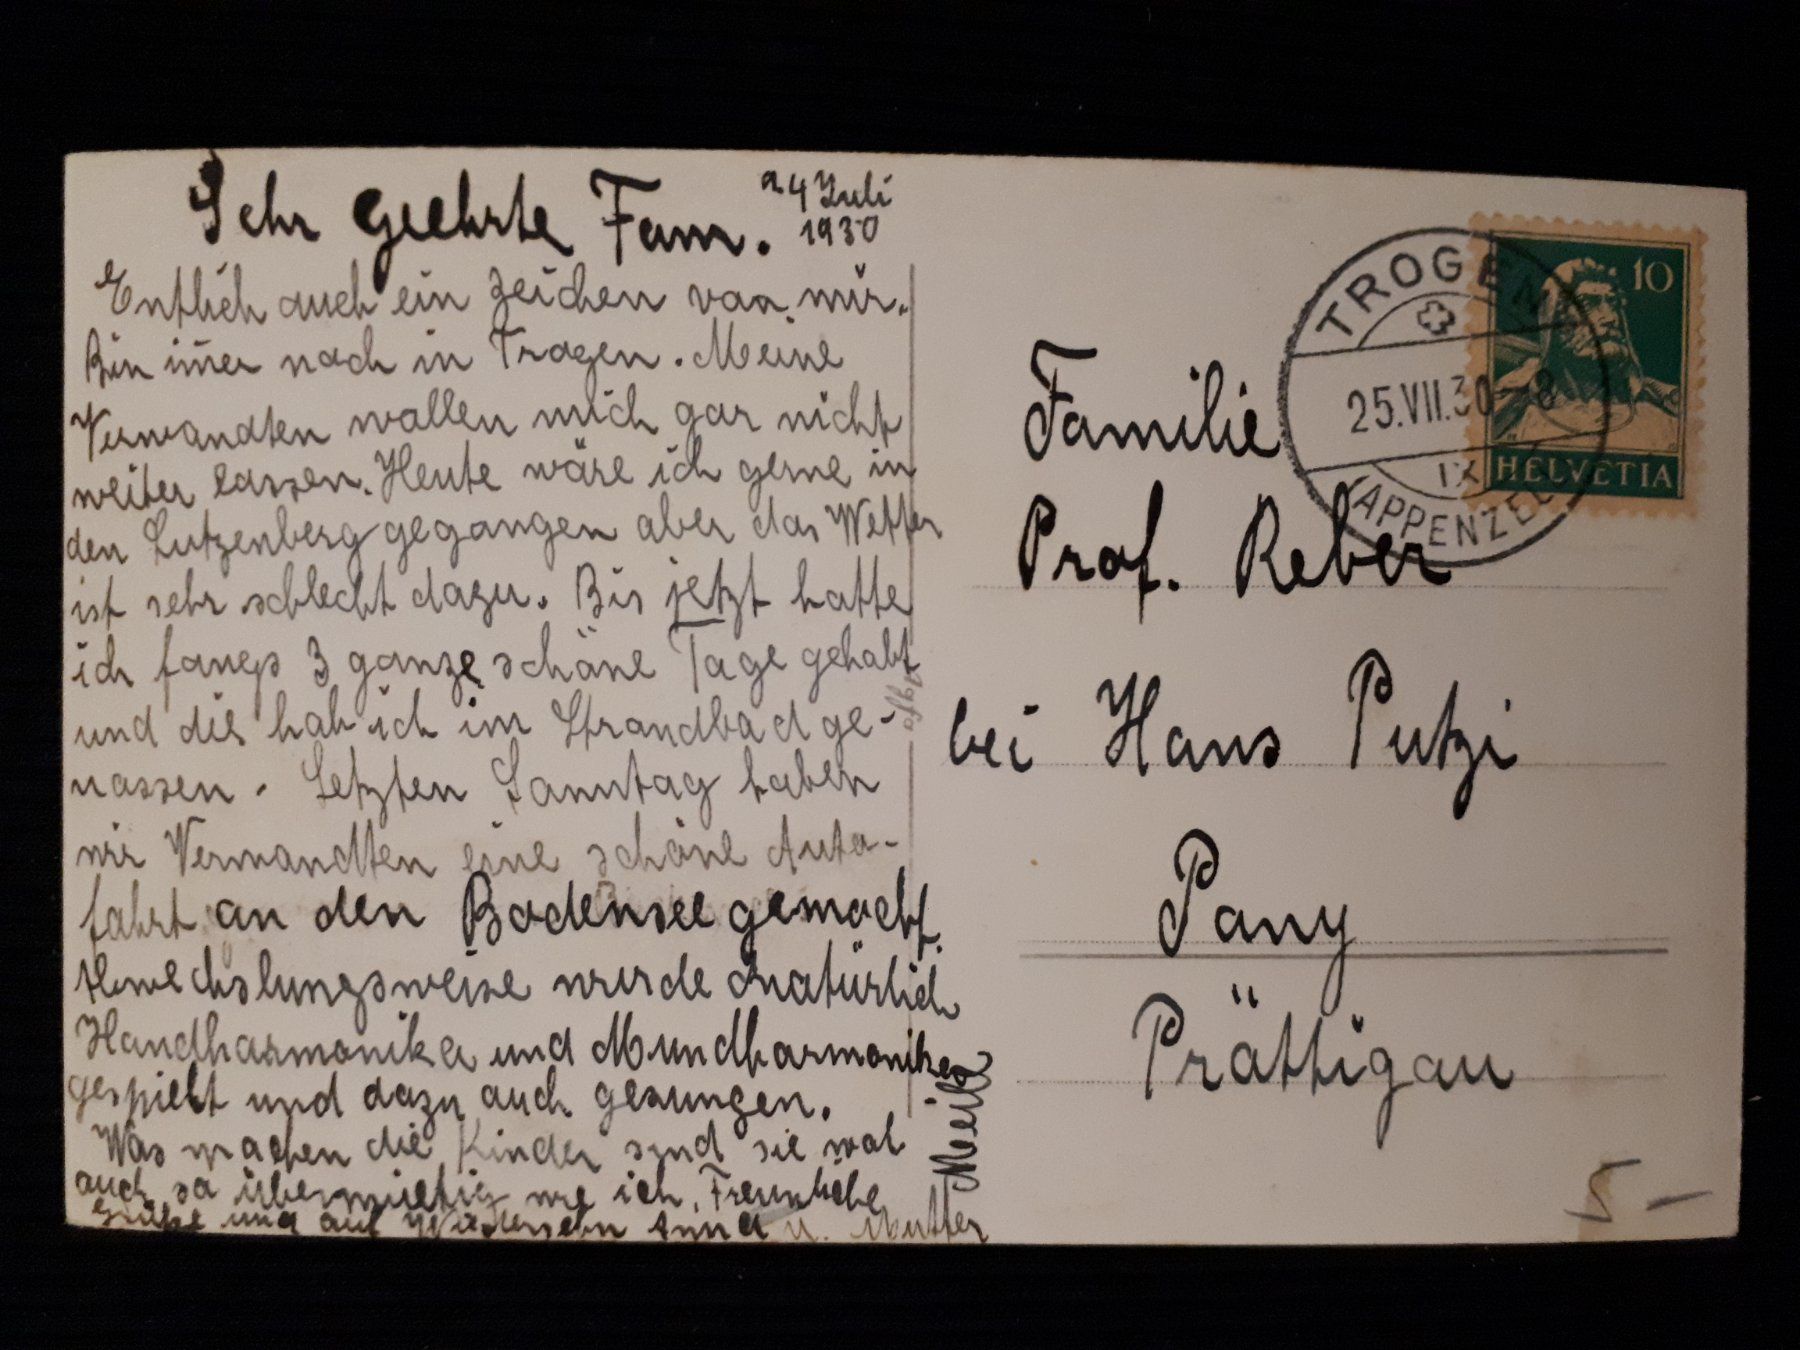 Sehr geehrte Fam.
24 Juli
1930
Entlich auch ein zeichen von mir.
Bin im̅er noch in Trogen. Meine
Verwandten wollen mich gar nicht
weiter lassen. Heute wäre ich gerne in
den Lutzenberg gegangen aber das Wetter
ist sehr schlecht dazu. Bis jetzt hatte
ich 3 ganze schöne Tage gehabt
und die hab ich im Strandbad ge-
nossen. Letzten Sonntag haben
wir Verwandten eine schöne Auto-
fahrt an den Bodensee gemacht.
Abwechslungsweise wurde natürlich
Handharmonika und Mundharmonika
gespielt und dazu auch gesungen.
Was machen die Kinder sind sie wol
auch so übermütig wie ich. Freundliche
Grüsse und auf Wiedersehn Anna u. Mutter
Agfa
TROGEN
25.VII.30-8
IX
APPENZELL
10
HELVETIA
Familie
Prof. Reber
bei Hans Putzi
Pany
Prättigau
5-